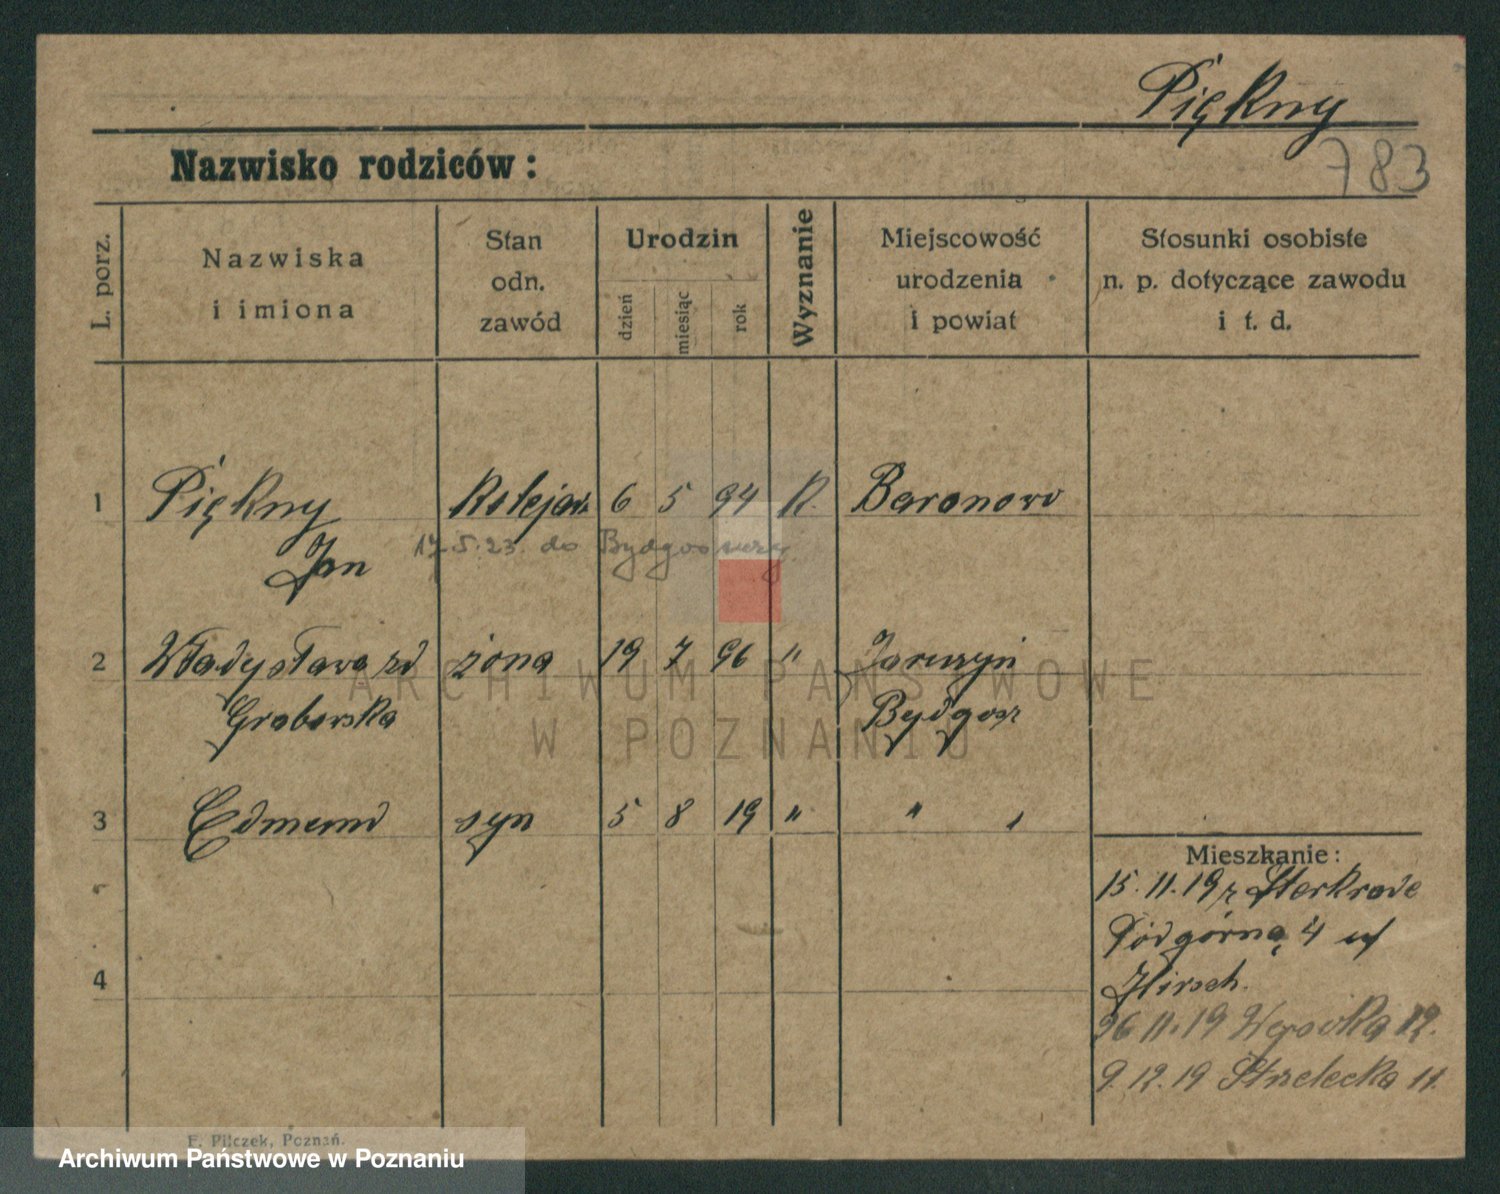 Piękny
783
Nazwisko rodziców:
L. porz.
Nazwiska
i imiona
Stan
odn.
zawód
Urodzin
dzień
miesiąc
rok
Wyznanie
Miejscowość
urodzenia
i powiat
Stosunki osobiste
n. p. dotyczące zawodu
i t. d.
1 Piękny Kolejarz 6 5 94 K. Baranowo
Jan
17.5.23. do Bydgoszczy
2 Władysława zd żona 19 7 96 "
Grabowska Bydgosz
3 Edmund syn 5 8 19 " " "
Mieszkanie:
15.11.19 z Sterkrade
Podgórna 4 u/
Hirsch.
4
26 11.19
9.12.19 Strzelecka 11.
F. Pilczek, Poznań.
ARCHIWUM PAŃSTWOWE
W POZNANIU
Archiwum Państwowe w Poznaniu